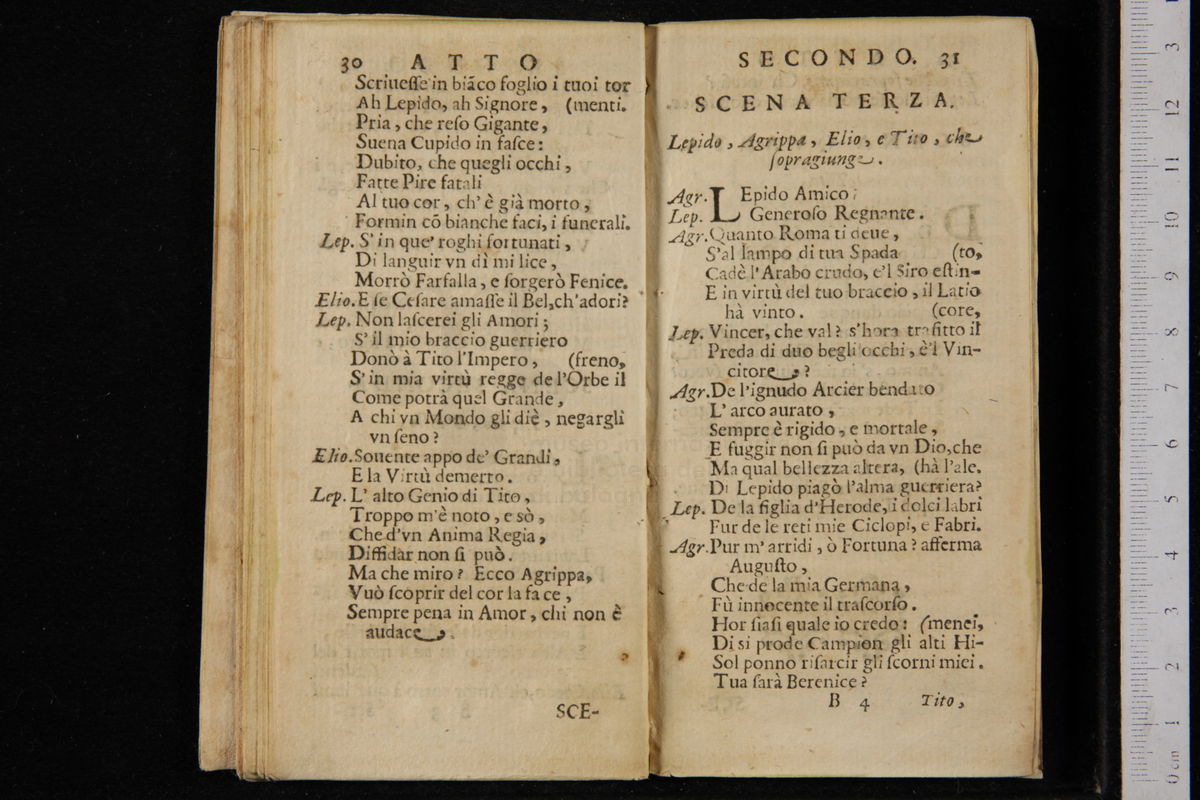 30 ATTO
Scriueſſe in biãco foglio i tuoi tor
Ah Lepido, ah Signore, (menti.
Pria, che reſo Gigante,
Suena Cupido in faſce:
Dubito, che quegli occhi,
Fatte Pire fatali
Al tuo cor, ch' è già morto,
Formin cõ bianche faci, i funerali.
Lep. S' in que' roghi fortunati,
Di languir vn dì mi lice,
Morrò Farfalla, e ſorgerò Fenice.
Elio. E ſe Ceſare amaſſe il Bel, ch'adori?
Lep. Non laſcerei gli Amori;
S' il mio braccio guerriero
Donò à Tito l'Impero, (freno,
S' in mia virtù regge de l'Orbe il
Come potrà quel Grande,
A chi vn Mondo gli diè, negargli
vn ſeno?
Elio. Souente appo de' Grandi,
E la Virtù demerto.
Lep. L' alto Genio di Tito,
Troppo m'è noto, e sò,
Che d'vn Anima Regia,
Diffidar non ſi può.
Ma che miro? Ecco Agrippa,
Vuò ſcoprir del cor la face,
Sempre pena in Amor, chi non è
audace.
SCE-
SECONDO. 31
SCENA TERZA.
Lepido, Agrippa, Elio, e Tito, che
ſopragiunge.
Agr. LEpido Amico:
Lep. Generoſo Regnante.
Agr. Quanto Roma ti deue,
S'al lampo di tua Spada (to,
Cadè l'Arabo crudo, e'l Siro eſtin-
E in virtù del tuo braccio, il Latio
hà vinto. (core,
Lep. Vincer, che val? s'hora trafitto il
Preda di duo begli occhi, è'l Vin-
citore?
Agr. De l'ignudo Arcier bendato
L' arco aurato,
Sempre è rigido, e mortale,
E fuggir non ſi può da vn Dio, che
Ma qual bellezza altera, (hà l'ale.
Di Lepido piagò l'alma guerriera?
Lep. De la figlia d'Herode, i dolci labri
Fur de le reti mie Ciclopi, e Fabri.
Agr. Pur m' arridi, ò Fortuna? afferma
Auguſto,
Che de la mia Germana,
Fù innocente il traſcorſo.
Hor ſiaſi quale io credo: (menei,
Di si prode Campion gli alti Hi-
Sol ponno riſarcir gli ſcorni miei.
Tua ſarà Berenice?
B 4 Tito,